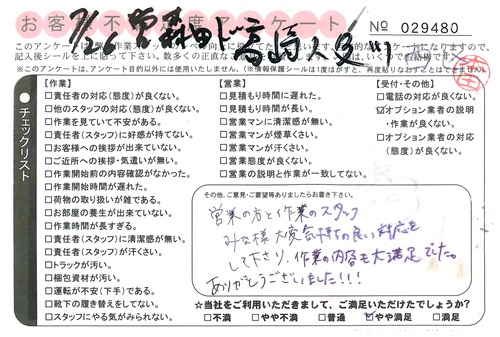 お客様不満足度アンケート
No 029480
7/26
このアンケートは
記入後シールを上に貼って下さい。
※このアンケートは、アンケート目的以外には使用いたしません。（※情報保護シールは1度はがすと、再度貼りなおすことはできません。）
チェックリスト
【作業】
□責任者の対応(態度)が良くない。
□他のスタッフの対応(態度)が良くない。
□作業を見ていて不安がある。
□責任者(スタッフ)に好感が持てない。
□お客様への挨拶が出来ていない。
□ご近所への挨拶・気遣いが無い。
□作業開始前の内容確認がなかった。
□作業開始時間が遅れた。
□荷物の取り扱いが雑である。
□お部屋の養生が出来ていない。
□作業時間が長すぎる。
□責任者(スタッフ)に清潔感が無い。
□責任者(スタッフ)が汗くさい。
□トラックが汚い。
□梱包資材が汚い。
□運転が不安(下手)である。
□靴下の履き替えをしてない。
□スタッフにやる気がみられない。
【営業】
□見積もり時間に遅れた。
□見積もり時間が長い。
□営業マンに清潔感が無い。
□営業マンが煙草くさい。
□営業マンが汗くさい。
□営業態度が良くない。
□営業の説明と作業が一致してない。
【受付・その他】
□電話の対応が良くない。
☑オプション業者の説明
・作業が良くない。
□オプション業者の対応
(態度)が良くない。
その他、ご意見・ご要望等ありましたらお書き下さい。
営業の方と作業のスタッフ
みな様大変気持ちの良い対応を
して下さり、作業の内容も大満足でした。
ありがとうございました!!!
☆当社をご利用いただきまして、ご満足いただけたでしょうか?
□不満 □やや不満 □普通 ☑やや満足 □満足